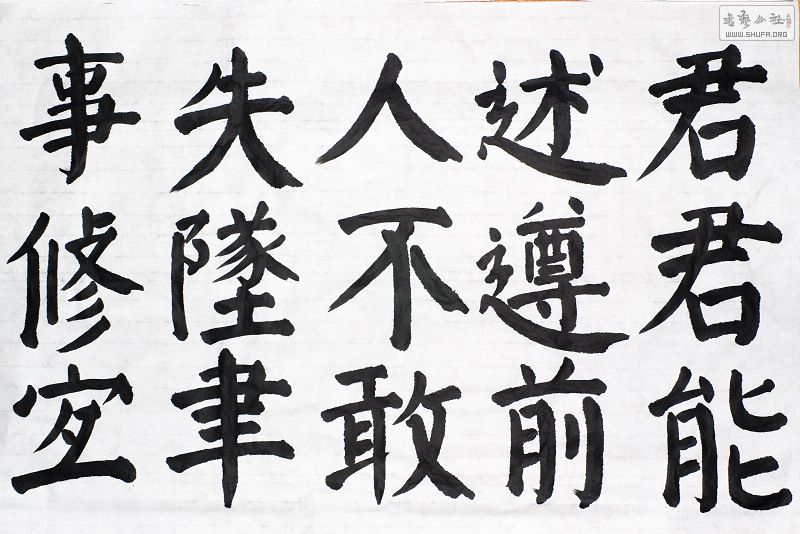 君君能
述遵前
人不敢
失墜聿
事修宜
書藝公社
WWW.SHUFA.ORG